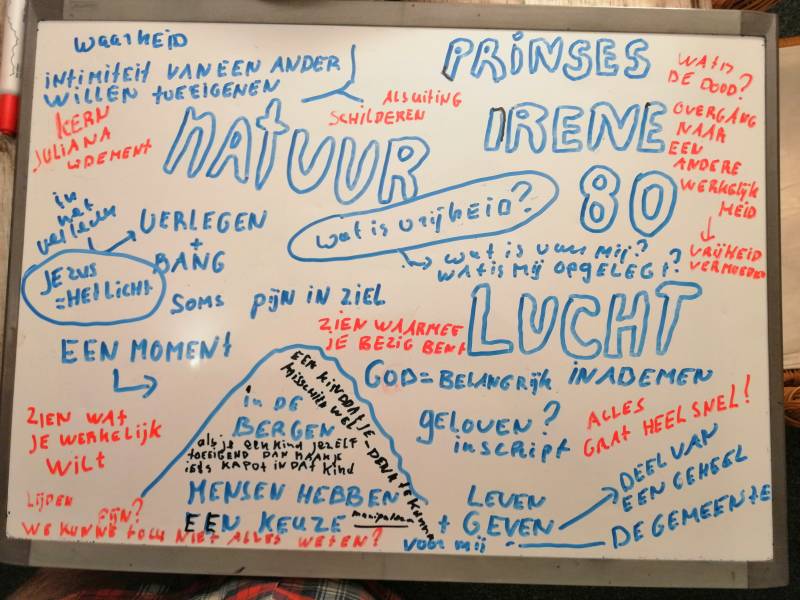 WAARHEID
INTIMITEIT VAN EEN ANDER
WILLEN TOEEIGENEN
KERN
JULIANA
ALS UITING
SCHILDEREN
NATUUR
PRINSES
IRENE
80
WAT IS
DE DOOD?
OVERGANG
NAAR
EEN
ANDERE
WERKELIJK
HEID
VRIJHEID
VERMOEDEN
wat is vrijheid?
wat is van mij?
WAT IS MIJ OPGELEGT?
in
het
verleden
VERLEGEN
+
BANG
JEZUS
=HET LICHT
SOMS PIJN IN ZIEL
EEN MOMENT
ZIEN WAARMEE
JE BEZIG BENT
LUCHT
GOD = BELANGRIJK INADEMEN
ZIEN WAT
JE WERKELIJK
WILT
EEN KIND DAT JE DENKT TE KUNNEN
MISSCHIEN WEL
in DE
BERGEN
als je een kind jezelf
toeeigend dan maak je
iets kapot in dat kind
MENSEN HEBBEN
EEN KEUZE
manipuleren
geloven?
inscript
ALLES
GAAT HEEL SNEL!
LEVEN
+ GEVEN
DEEL VAN
EEN GEHEEL
DE GEMEENTE
voor mij
LIJDEN
PIJN?
WE KUNNE TOCH NIET ALLES WETEN?